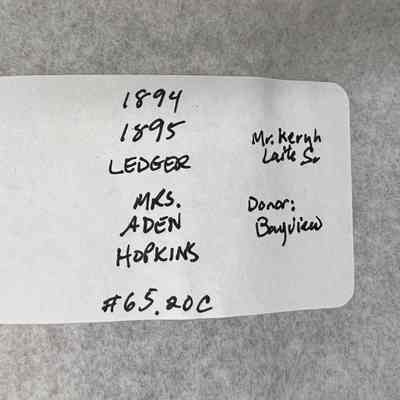 1894
1895
LEDGER
MRS.
ADEN
HOPKINS
#65.20C
Mr.
Sr
Donor:
Bayview